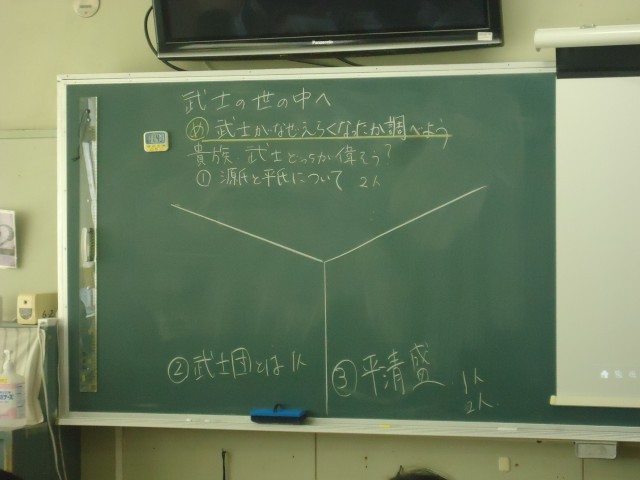 Panasonic
武士の世の中へ
め 武士がなぜえらくなったか調べよう
貴族 武士どっちが偉そう?
① 源氏と平氏について 2人
② 武士団とは 1人
③ 平清盛 1人
2人
2